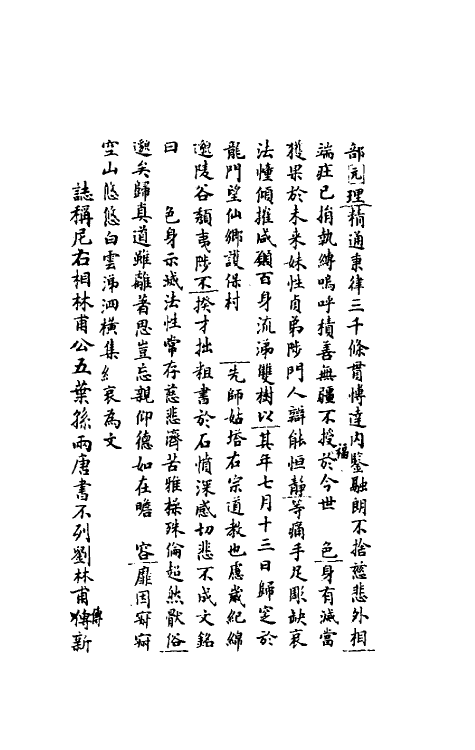 部閫理精通東律三千條貫博達內鑒融朗不捨慈悲外相
端莊已捐執縛嗚呼積善無疆不授福於今世　色身有滅當
獲果於未来妹性貞弟陟門人辯能恒靜等痛手足彫缺哀
法憧傾摧咸願百身流涕雙樹以其年七月十三日歸窆於
龍門望仙鄉護保村　　先師姑塔右宗道教也慮歲紀綿
邈陵谷頹夷陟不揆才拙粗書於石憤深感切悲不成文銘
曰　色身示滅法性常存慈悲濟苦雅操殊倫超然厭俗
邈矣歸真道雖離著恩豈忘親仰德如在瞻　容靡因寂寂
空山悠悠白雲涕泗橫集紀哀為文
誌稱尼右相林甫公五葉孫兩唐書不列劉林甫傳新